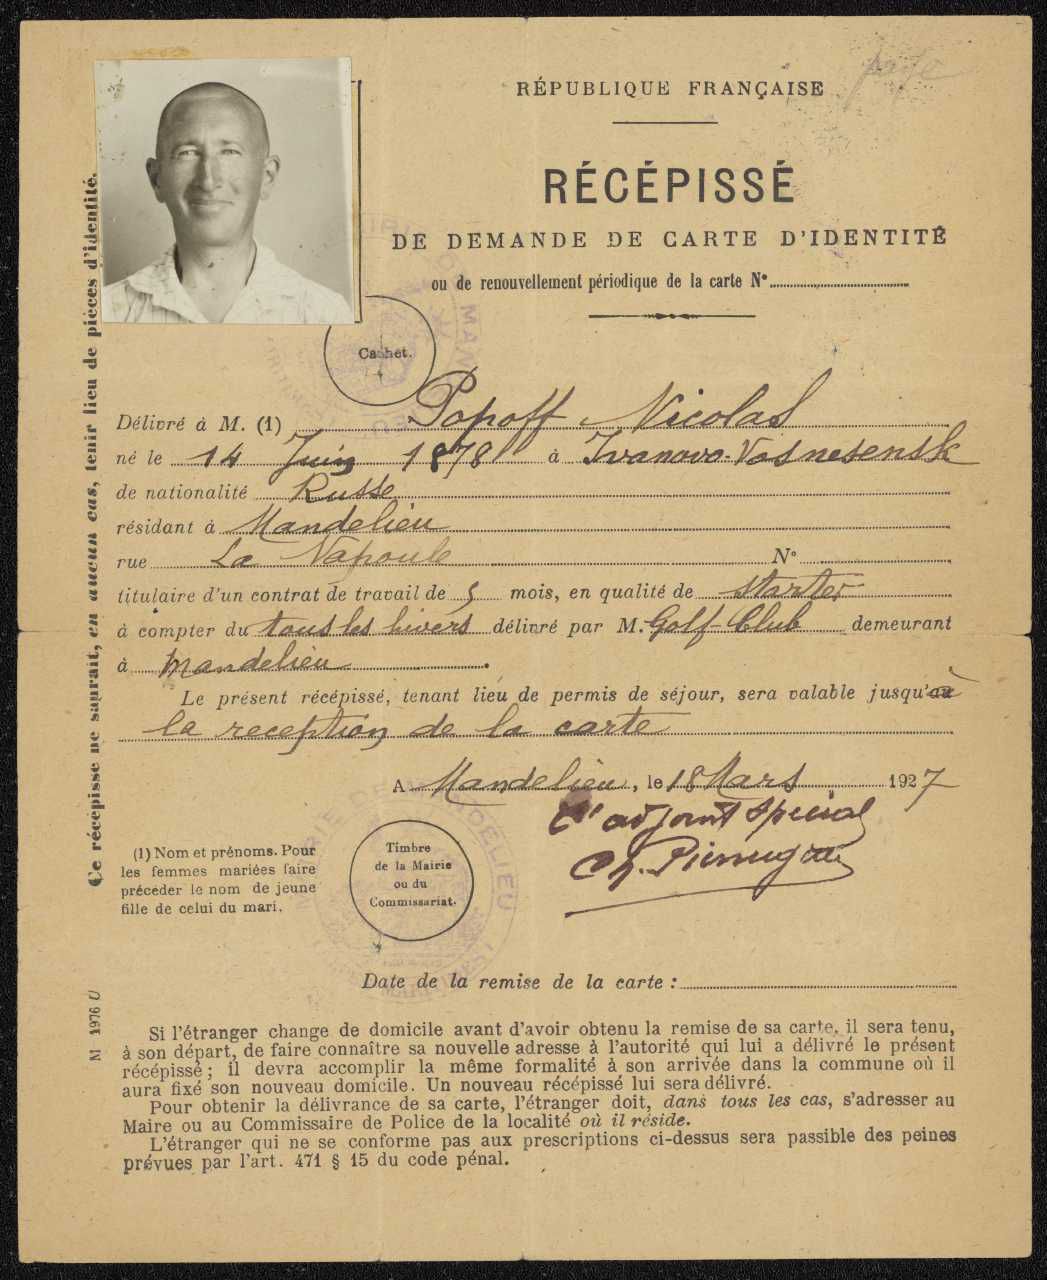 RÉPUBLIQUE FRANÇAISE
RÉCÉPISSÉ
DE DEMANDE DE CARTE D'IDENTITÉ
ou de renouvellement périodique de la carte N°
Cachet.
Délivré à M. (1) Popoff Nicolas
né le 14 Juin 1878 à Ivanovo-Vosnesensk
de nationalité Russe
résidant à Mandelieu
rue La Napoule N°
titulaire d'un contrat de travail de 5 mois, en qualité de starter
à compter du tous les hivers délivré par M. Golf-Club demeurant
à Mandelieu
Le présent récépissé, tenant lieu de permis de séjour, sera valable jusqu'au à
la reception de la carte
A Mandelieu, le 18 Mars 1927
adjoint spécial
(1) Nom et prénoms. Pour
les femmes mariées faire
précéder le nom de jeune
fille de celui du mari.
Timbre
de la Mairie
ou du
Commissariat.
MAIRIE DE MANDELIEU
Date de la remise de la carte :
Si l'étranger change de domicile avant d'avoir obtenu la remise de sa carte, il sera tenu,
à son départ, de faire connaître sa nouvelle adresse à l'autorité qui lui a délivré le présent
récépissé ; il devra accomplir la même formalité à son arrivée dans la commune où il
aura fixé son nouveau domicile. Un nouveau récépissé lui sera délivré.
Pour obtenir la délivrance de sa carte, l'étranger doit, dans tous les cas, s'adresser au
Maire ou au Commissaire de Police de la localité où il réside.
L'étranger qui ne se conforme pas aux prescriptions ci-dessus sera passible des peines
prévues par l'art. 471 § 15 du code pénal.
Ce récépisse ne saurait, en aucun cas, tenir lieu de pièces d'identité.
M 1976 U